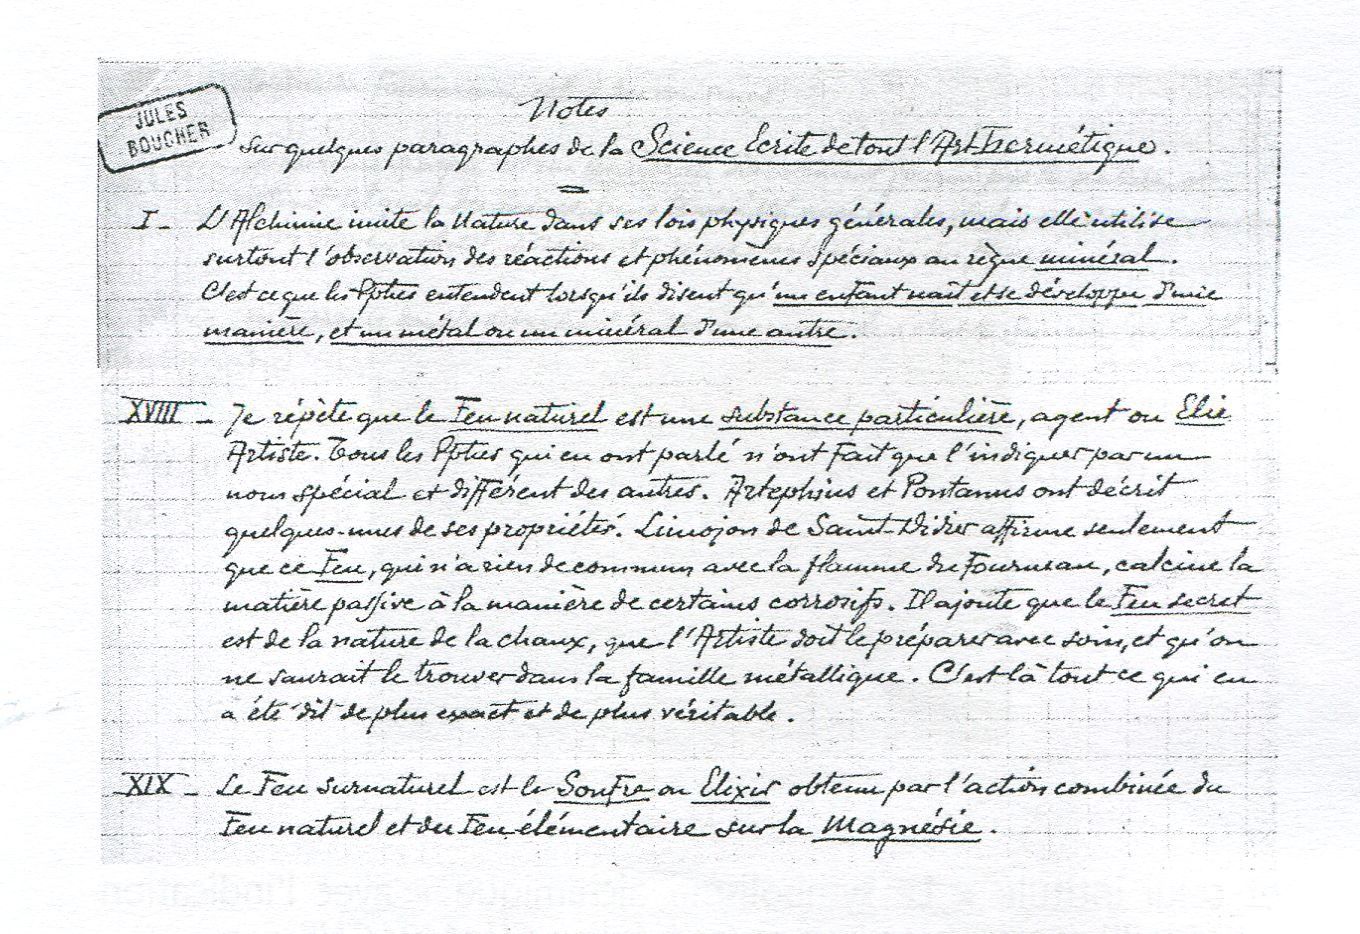 JULES
BOUCHER
Notes
sur quelques paragraphes de la Science Ecrite de tout l'Art hermétique.
I - L'Alchimie imite la Nature dans ses lois physiques générales, mais elle utilise
surtout l'observation des réactions et phénomènes spéciaux au règne minéral.
C'est ce que les Pphes entendent lorsqu'ils disent qu'un enfant naît et se développe d'une
manière, et un métal ou un minéral d'une autre.
XVIII - Je répète que le Feu naturel est une substance particulière, agent ou Elie
Artiste. Tous les Pphes qui en ont parlé n'ont fait que l'indiquer par un
nom spécial et différent des autres. Artephius et Pontanus ont décrit
quelques-unes de ses propriétés. Limojon de Saint-Didier affirme seulement
que ce Feu, qui n'a rien de commun avec la flamme du fourneau, calcine la
matière passive à la manière de certains corrosifs. Il ajoute que le Feu secret
est de la nature de la chaux, que l'Artiste doit le préparer avec soin, et qu'on
ne saurait le trouver dans la famille métallique. C'est là tout ce qui en
a été dit de plus exact et de plus véritable.
XIX - Le Feu surnaturel est le Soufre ou Elixir obtenu par l'action combinée du
Feu naturel et du Feu élémentaire sur la Magnésie.